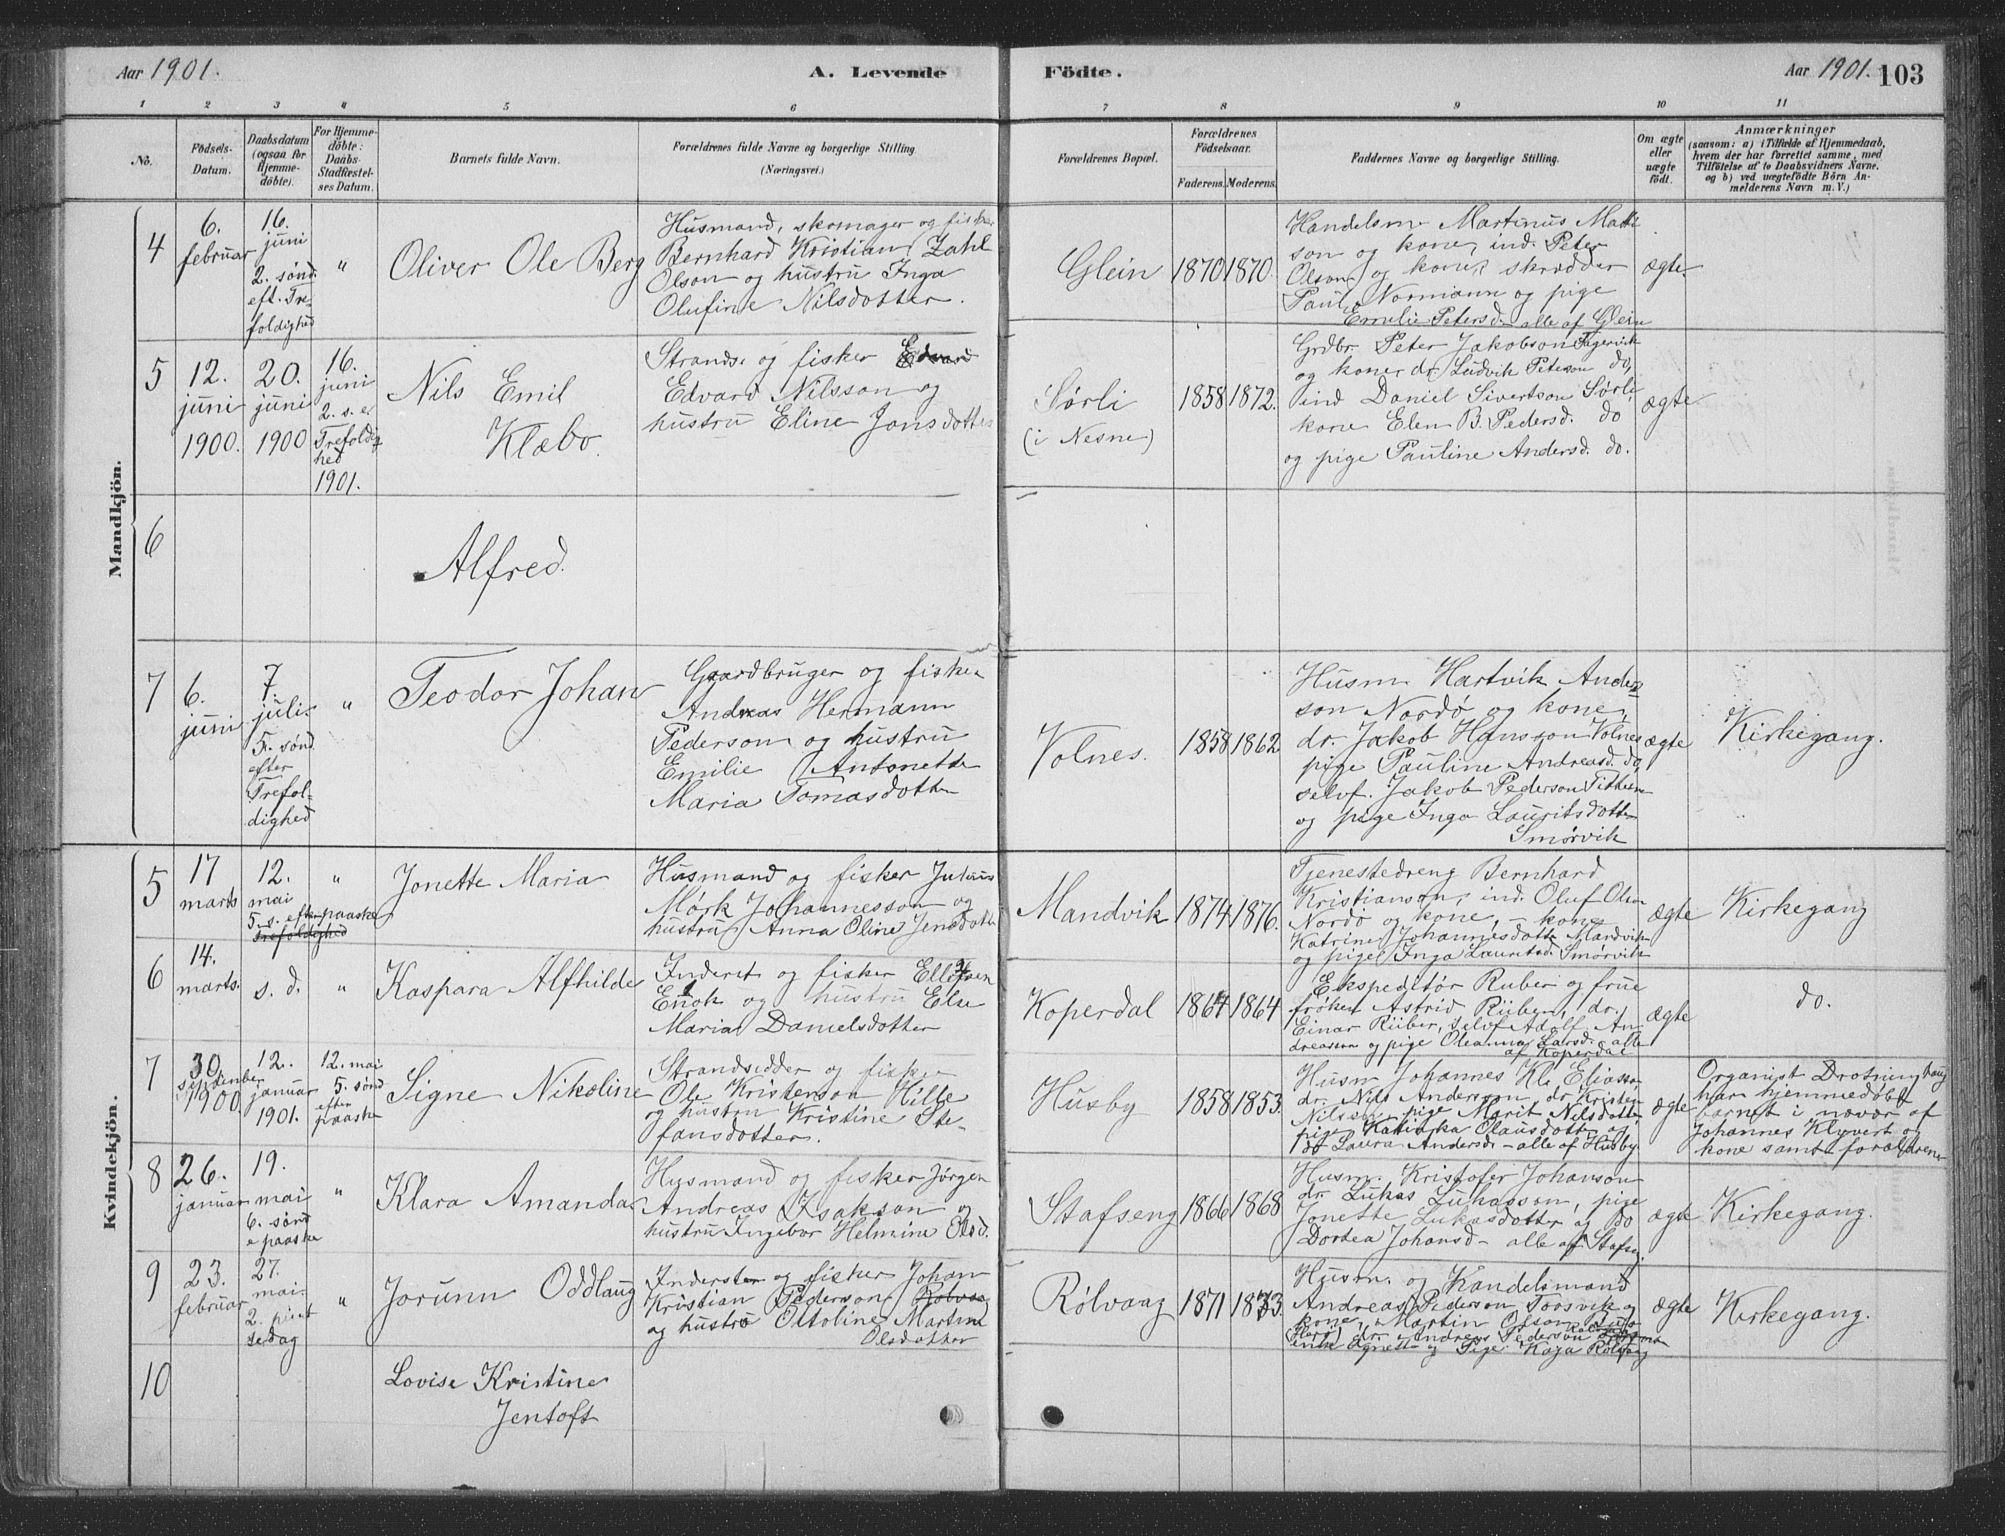 Aar 1901.
A. Levende
Födte.
Aar 1901. 103
1 2 3 4 5 6 7 8 9 10 11
No.
Födsels-
Datum.
Daabsdatum
(ogsaa for
Hjemme-
döbte).
For Hjemme-
döbte:
Daabs-
Stadfæstel-
ses Datum.
Barnets fulde Navn.
Forældrenes fulde Navne og borgerlige Stilling
(Næringsvei.)
Forældrenes Bopæl.
Forældrenes
Födselsaar.
Faderens. Moderens.
Faddernes Navne og borgerlige Stilling.
Om ægte
eller
uægte
födt.
Anmærkninger
(saasom: a) i Tilfælde af Hjemmedaab,
hvem der har forrettet samme, med
Tilföielse af to Daabsvidners Navne,
og b) ved uægtefödte Börn An-
melderens Navn m. V.)
Mandkjön.
4
6.
februar
16.
juni
2. sønd.
eft. Tre-
foldighed
"
Oliver Ole Berg
Husmand, skomager og fisker
Bernhard Kristian Zahl
Olson og hustru Inga
Olufine Nilsdotter.
Glein
1870 1870
Handelsm. Martinus Matti
son og kone, ind. Peter
Olson og kone, skrædder
Paul Normann og pige
Emelie Petersd. - alle af Glein
ægte
5
12.
juni
1900.
20.
juni
1900
16.
juni
2. s. e
Trefoldig
hed
1901.
Nils Emil
Klæbo.
Strands. og fisker Edvard
Edvard Nilsson og
hustru Eline Jonsdotter
Sørli
(i Nesne)
1858 1872.
Grdbr. Peter Jakobson Fagervik
og kone, dr. Ludvik Peterson do,
ind Daniel Sivertson Sørli,
kone Elen B. Pedersd. do
og pige Pauline Andersd. do.
ægte
6
Alfred.
7
6.
juni
7.
juli
5. sønd
efter
Trefol-
dighed
"
Teodor Johan
Gaardbruger og fisker
Andreas Hermann
Pederson og hustru
Emilie Antonette
Maria Tomasdotter
Volnes.
1858 1862
Husm. Hartvik Anders
son Nordø og kone,
dr. Jakob Hansson Volnes
pige Pauline Andreasd. do,
selvf. Jakob Pederson
og pige Inga Lauritsdotter
Smørvik
ægte
Kirkegang.
Kvindekjön.
5
17
marts
12.
mai
5. s. efter paaske
Trefoldighed
"
Jonette Maria
Husmand og fisker Julius
Mørk Johannesson og
hustru Anna Oline Jensdotter
Mandvik
1874 1876.
Tjenestedreng Bernhard
Kristianson, ind. Oluf Olsen
Nordø og kone, - kone
Katrine Johannesdotter Mandvik
og pige Inga Lauritsd. Smørvik
ægte
Kirkegang
6
14.
marts.
s. d.
"
Kaspara Alfhilde
Inderst og fisker Ellefsen
Enok og hustru Else
Maria Danielsdotter
Koperdal
1864 1864
Ekspeditør Ruber og frue
frøken Astrid Rüber, dr.
Einar Rüber, selvf Adolf An
dreassen og pige Oleanna Larsd. alle
af Koperdal
ægte
do.
7
30.
september
1900.
12.
januar
1901.
12. mai
5. sønd
efter
paaske
Signe Nikoline
Strandsidder og fisker
Ole Kristenson Hille
og hustru Kristine Ste-
fansdotter.
Husby
1858 1853.
Husm Johannes Kl. Eliasson
dr. Nils Anderson, dr. Kristen
Nilsen, pige Marit Nilsdotter
pige Katinka Olausdotter og
do Laura Andersd. - alle af Husby
ægte
Organist Drotninghaug
har hjemmedøbt
barnet i nævær af
Johannes Klyvert og
kone samt forældrene
8
26.
januar
19.
mai
6. sønd
e paaske
"
Klara Amanda
Husmand og fisker Jørgen
Andreas Isakson og
hustru Ingebor Helmine Olsd.
Stafseng
1866 1868.
Husm. Kristofer Johanson
dr. Lukas Lukasson, pige
Jonette Lukasdotter og do
Dortea Johansd - alle af Stafseng
ægte
Kirkegang.
9
23.
februar
27.
mai
2. pint
sedag
"
Jorunn Oddlaug
Inderster og fisker Johan
Kristian Pederson Rølvaag
og hustru Ottoline Martine
Olsdotter
Rølvaag
1871 1873.
Husm. og Handelsmand
Andreas Pederson Toosvik og
kone, Martin Olson
(Herø) dr. Andreas Pederson
og Pige Kaja Rølvaag
ægte
Kirkegang.
10
Lovise Kristine
Jentoft